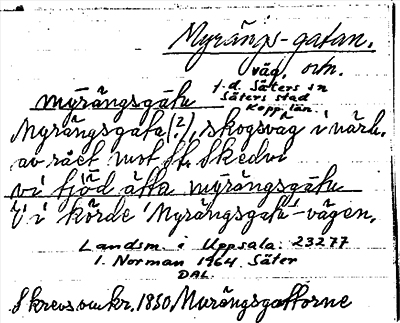 Myrängs-gatan.
väg, ortn.
f.d. Säters sn
Säters stad
Kopp. län.
myrängsgatu
Myrängsgata (?), skogsväg i närh.
av rået mot St. Skedvi
vi fjöd åtta myrängsgatu
V i körde Myrängsgatu-vägen.
Landsm. i Uppsala: 23277
I. Norman 1964 Säter
DAL.
Skrevs omkr. 1850 Murängsgattorne